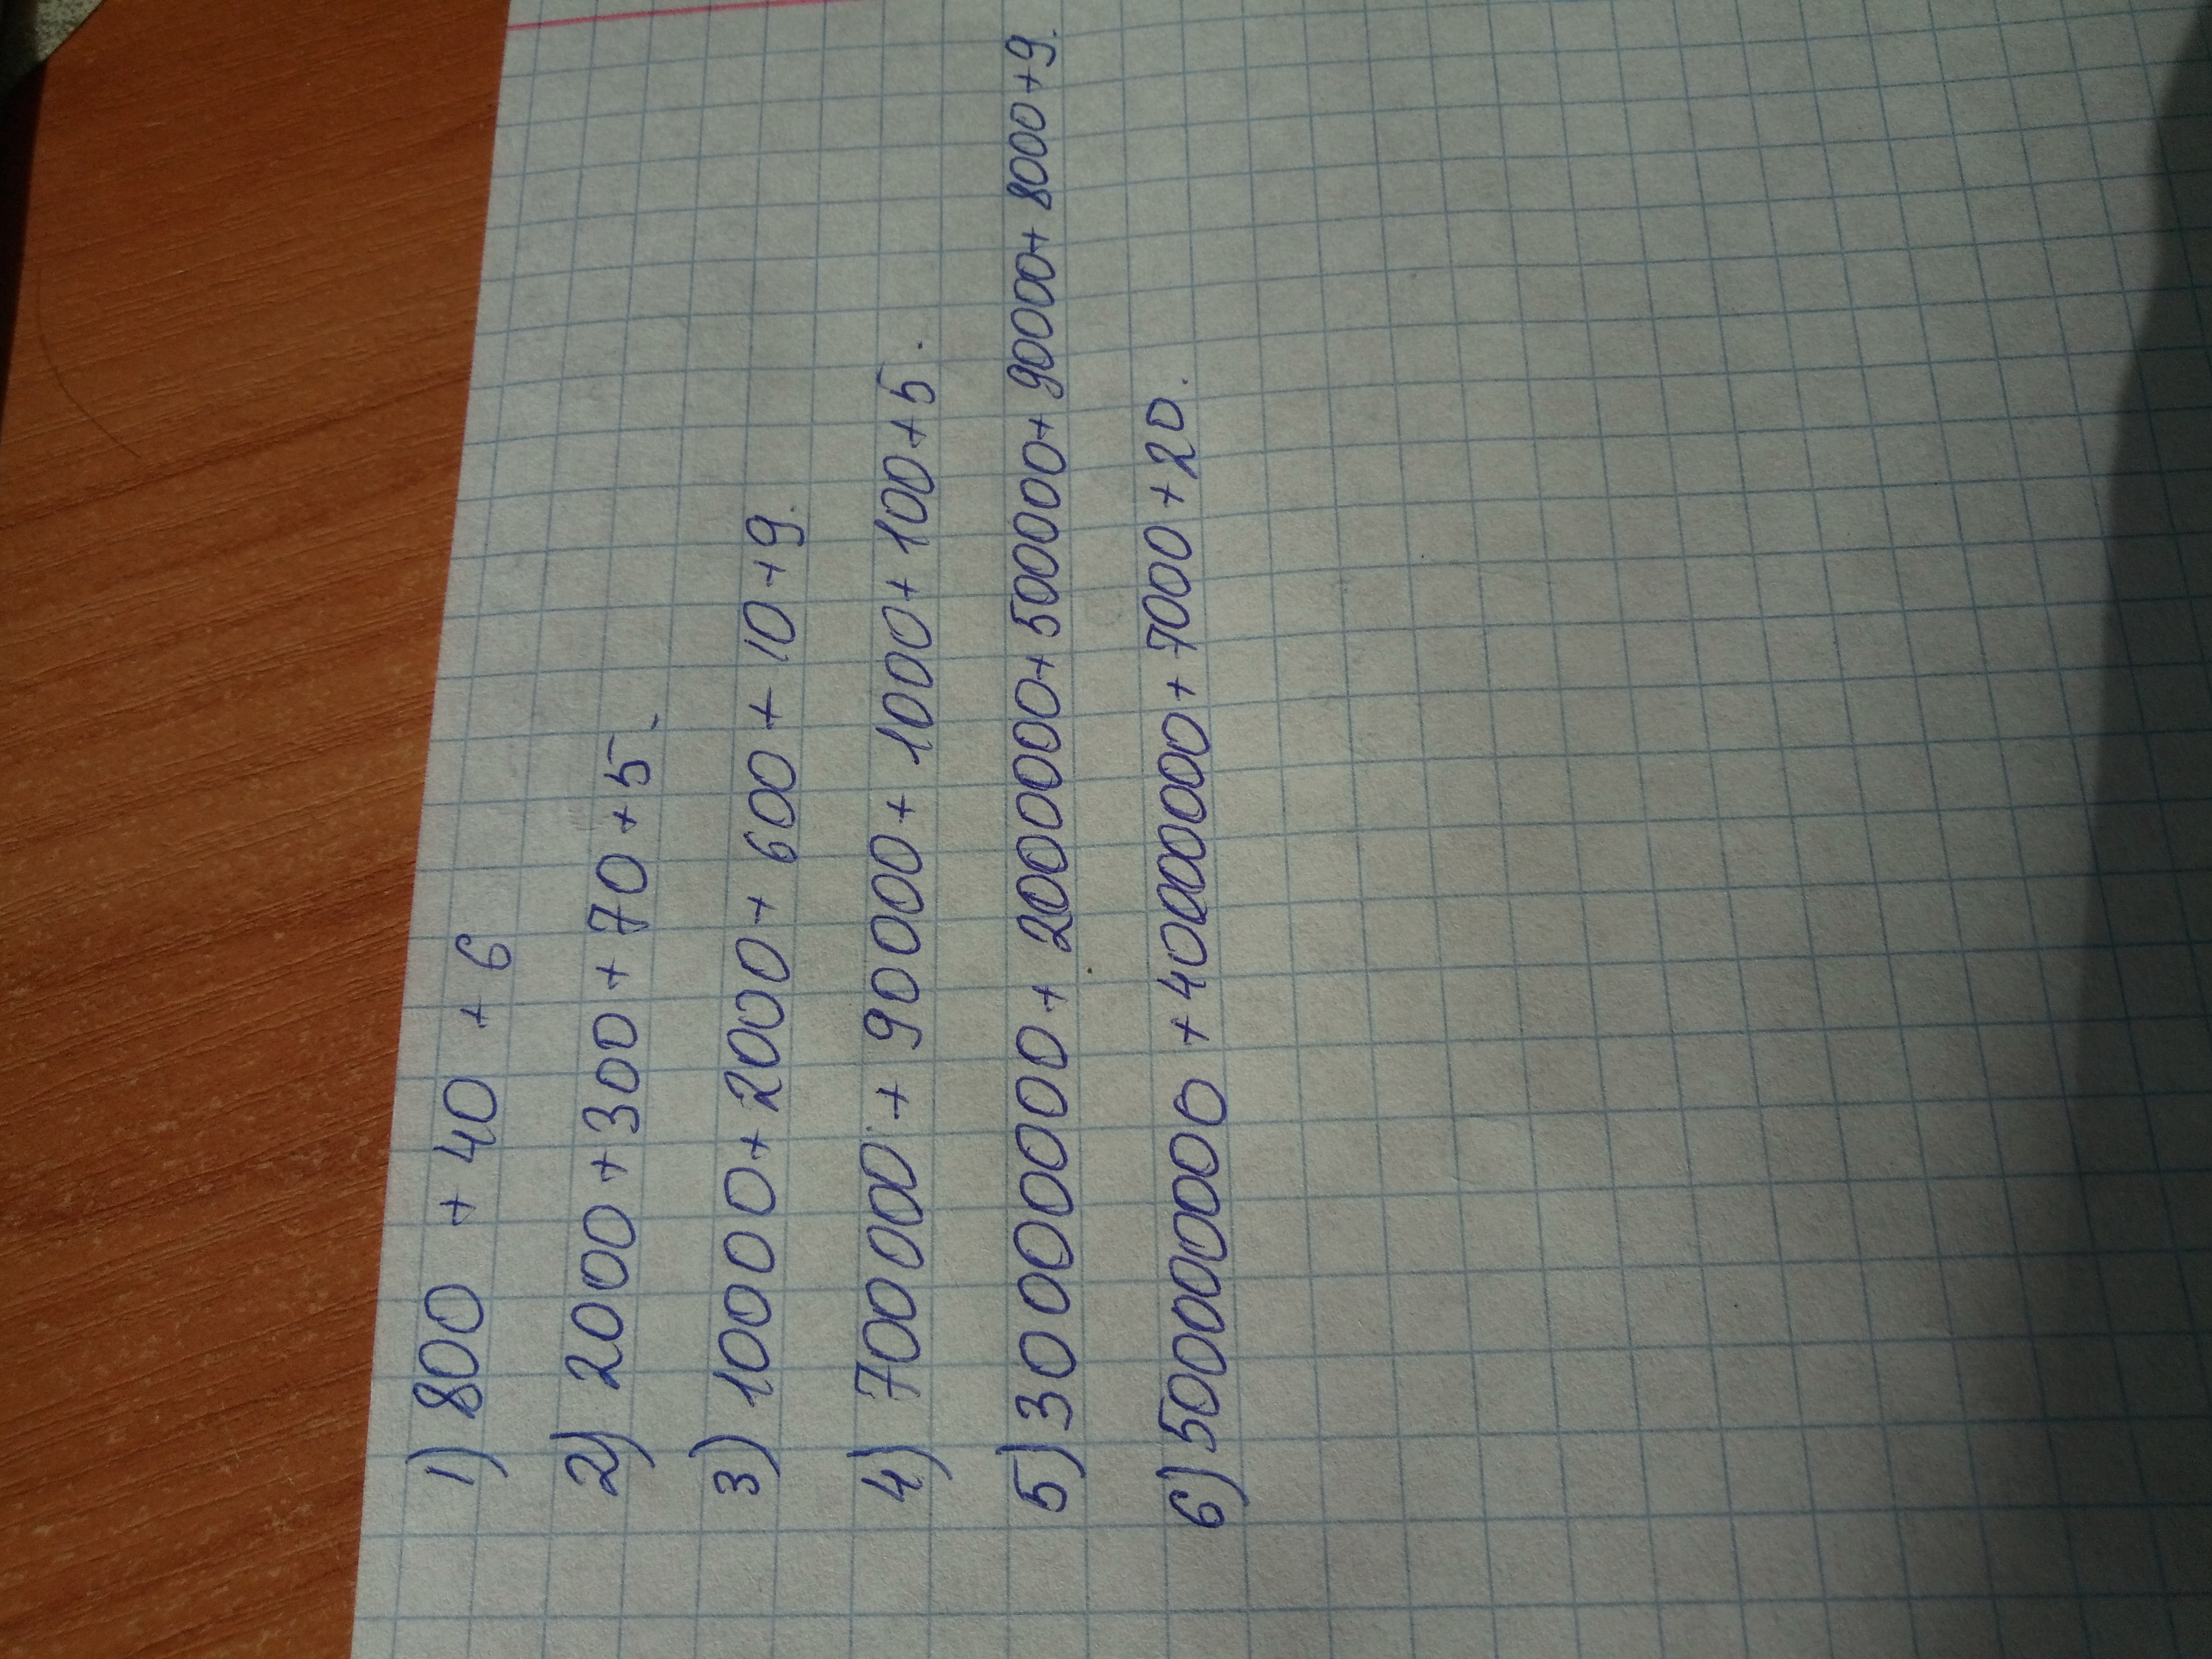 1) 800 + 40 + 6
2) 2000 + 300 + 70 + 5.
3) 10000 + 2000 + 600 + 10 + 9.
4) 700 000 + 90000 + 1000 + 100 + 5.
5) 30000000 + 2000000 + 500000 + 90000 + 8000 + 9.
6) 50000000 + 4000000 + 7000 + 20.